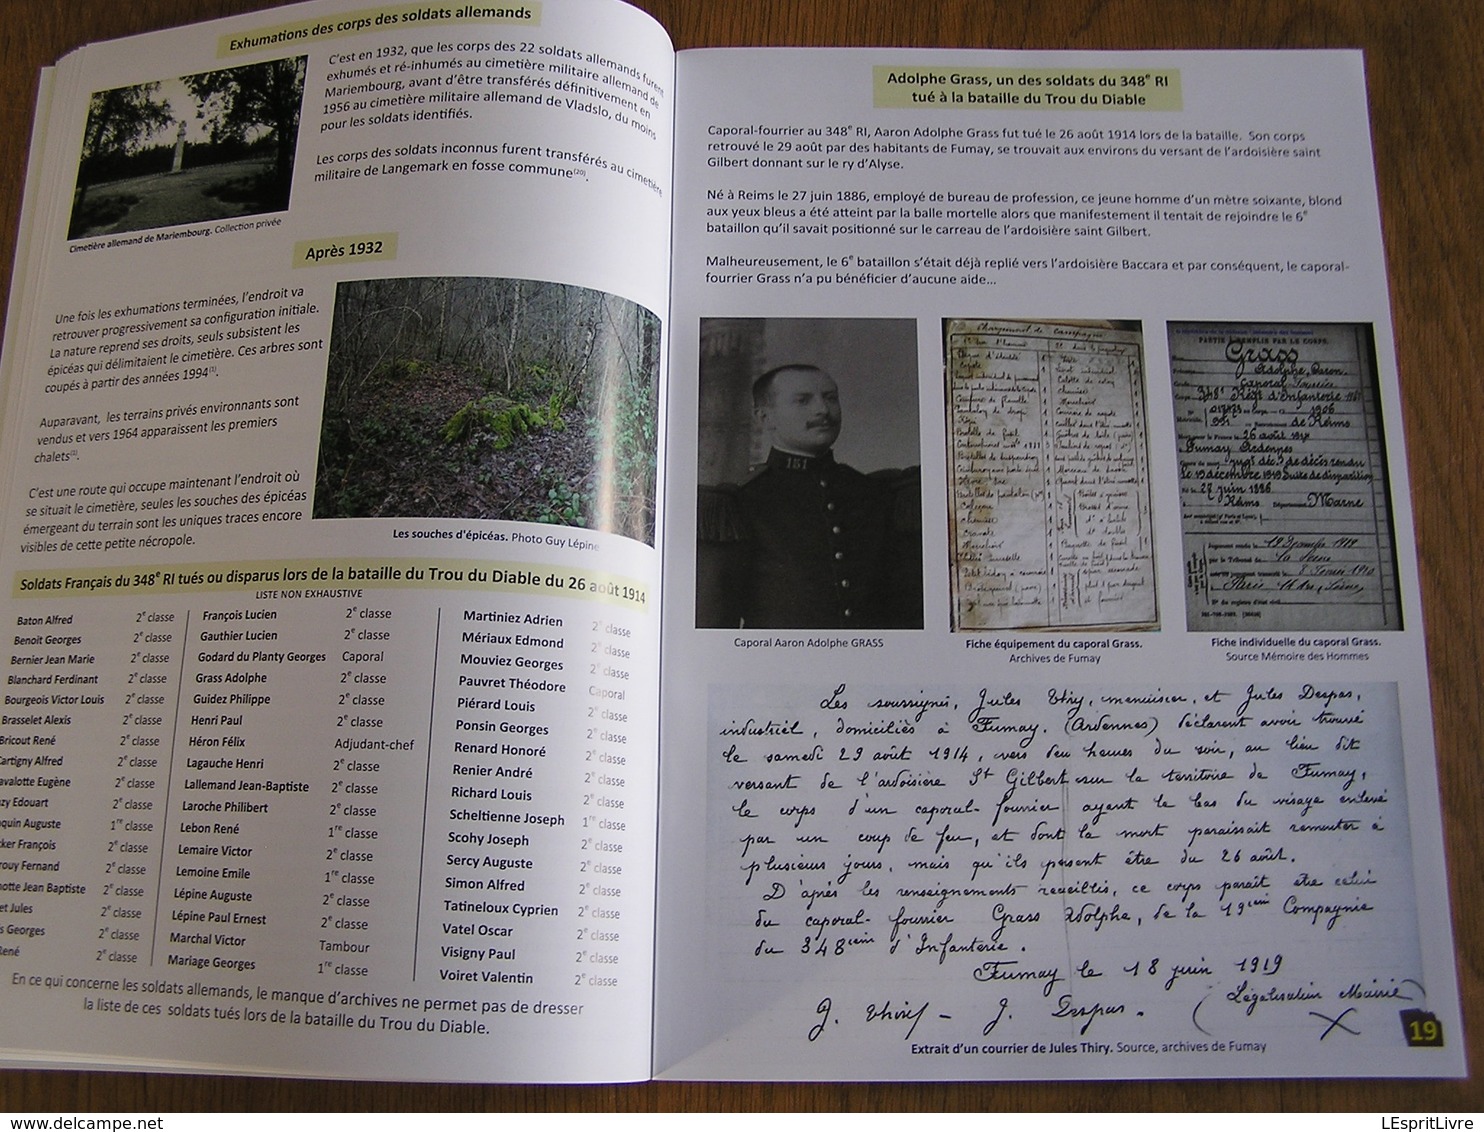 Exhumations des corps des soldats allemands
C'est en 1932, que les corps des 22 soldats allemands furent
exhumés et ré-inhumés au cimetière militaire allemand de
Mariembourg, avant d'être transférés définitivement en
1956 au cimetière militaire allemand de Vladslo, du moins
pour les soldats identifiés.
Les corps des soldats inconnus furent transférés au cimetière
militaire de Langemark en fosse commune(20).
Cimetière allemand de Mariembourg. Collection privée
Après 1932
Une fois les exhumations terminées, l'endroit va
retrouver progressivement sa configuration initiale.
La nature reprend ses droits, seuls subsistent les
épicéas qui délimitaient le cimetière. Ces arbres sont
coupés à partir des années 1994(1).
Auparavant, les terrains privés environnants sont
vendus et vers 1964 apparaissent les premiers
chalets(1).
C'est une route qui occupe maintenant l'endroit où
se situait le cimetière, seules les souches des épicéas
émergeant du terrain sont les uniques traces encore
visibles de cette petite nécropole.
Les souches d'épicéas. Photo Guy Lépine
Soldats Français du 348e RI tués ou disparus lors de la bataille du Trou du Diable du 26 août 1914
LISTE NON EXHAUSTIVE
Baton Alfred 2e classe
Benoit Georges 2e classe
Bernier Jean Marie 2e classe
Blanchard Ferdinant 2e classe
Bourgeois Victor Louis 2e classe
Brasselet Alexis 2e classe
Bricout René 2e classe
Cartigny Alfred 2e classe
avalotte Eugène 2e classe
zy Edouart 2e classe
quin Auguste 1re classe
ker François 2e classe
rouy Fernand 2e classe
notte Jean Baptiste 2e classe
et Jules 2e classe
s Georges 2e classe
René 2e classe
François Lucien 2e classe
Gauthier Lucien 2e classe
Godard du Planty Georges Caporal
Grass Adolphe 2e classe
Guidez Philippe 2e classe
Henri Paul 2e classe
Héron Félix Adjudant-chef
Lagauche Henri 2e classe
Lallemand Jean-Baptiste 2e classe
Laroche Philibert 2e classe
Lebon René 1re classe
Lemaire Victor 2e classe
Lemoine Emile 1re classe
Lépine Auguste 2e classe
Lépine Paul Ernest 2e classe
Marchal Victor Tambour
Mariage Georges 1re classe
Martiniez Adrien 2e classe
Mériaux Edmond 2e classe
Mouviez Georges 2e classe
Pauvret Théodore Caporal
Piérard Louis 2e classe
Ponsin Georges 2e classe
Renard Honoré 2e classe
Renier André 2e classe
Richard Louis 2e classe
Scheltienne Joseph 1re classe
Scohy Joseph 2e classe
Sercy Auguste 2e classe
Simon Alfred 2e classe
Tatineloux Cyprien 2e classe
Vatel Oscar 2e classe
Visigny Paul 2e classe
Voiret Valentin 2e classe
En ce qui concerne les soldats allemands, le manque d'archives ne permet pas de dresser
la liste de ces soldats tués lors de la bataille du Trou du Diable.
Adolphe Grass, un des soldats du 348e RI
tué à la bataille du Trou du Diable
Caporal-fourrier au 348e RI, Aaron Adolphe Grass fut tué le 26 août 1914 lors de la bataille. Son corps
retrouvé le 29 août par des habitants de Fumay, se trouvait aux environs du versant de l'ardoisière saint
Gilbert donnant sur le ry d'Alyse.
Né à Reims le 27 juin 1886, employé de bureau de profession, ce jeune homme d'un mètre soixante, blond
aux yeux bleus a été atteint par la balle mortelle alors que manifestement il tentait de rejoindre le 6e
bataillon qu'il savait positionné sur le carreau de l'ardoisière saint Gilbert.
Malheureusement, le 6e bataillon s'était déjà replié vers l'ardoisière Baccara et par conséquent, le caporal-
fourrier Grass n'a pu bénéficier d'aucune aide...
151
Chargement de Campagne
PARTIE À REMPLIR PAR LE CORPS.
Grass
Adolphe, Aaron
Caporal Fourrier
348e Régt d'Infanterie
1906
de Reims
26 août 1914
Fumay Ardennes
27 juin 1886
Reims Département Marne
Caporal Aaron Adolphe GRASS
Fiche équipement du caporal Grass.
Archives de Fumay
Fiche individuelle du caporal Grass.
Source Mémoire des Hommes
Les soussignés, Jules Thiry, menuisier, et Jules Despas,
industriel, domiciliés à Fumay. (Ardennes) déclarent avoir trouvé
le samedi 29 août 1914, vers deu heures du soir, au lieu dit
versant de l'ardoisière St Gilbert sur la territoire de Fumay,
le corps d'un caporal-fourrier ayant le bas du visage enlevé
par un coup de feu, et dont la mort paraissait remonter à
plusieurs jours, mais qu'ils pensent être du 26 août.
D'après les renseignements recueillis, ce corps parait être celui
du caporal-fourrier Grass Adolphe, de la 19ième Compagnie
du 348ième d'Infanterie.
Fumay le 18 juin 1919
J. Thiry - J. Despas.
(Légalisation Mairie)
Extrait d'un courrier de Jules Thiry. Source, archives de Fumay
19
LEspritLivre